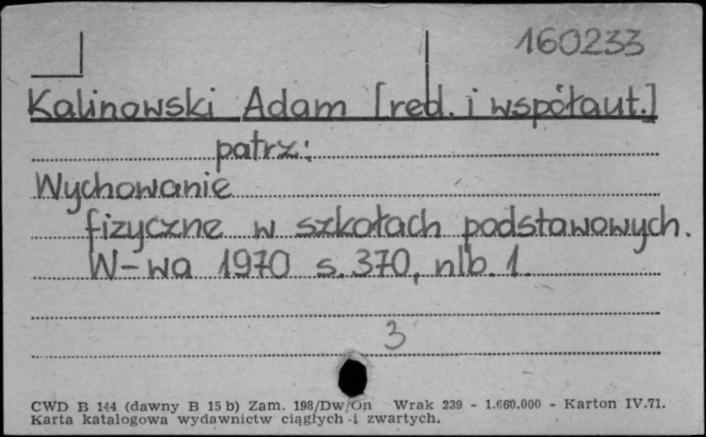 160233
Kalinowski Adam [red. i współaut.]
patrz:
Wychowanie
fizyczne w szkołach podstawowych.
W-wa 1970 s. 370, nlb. 1.
3
CWD B 144 (dawny B 15 b) Zam. 198/Dw/On Wrak 239 - 1.660.000 - Karton IV.71.
Karta katalogowa wydawnictw ciągłych i zwartych.